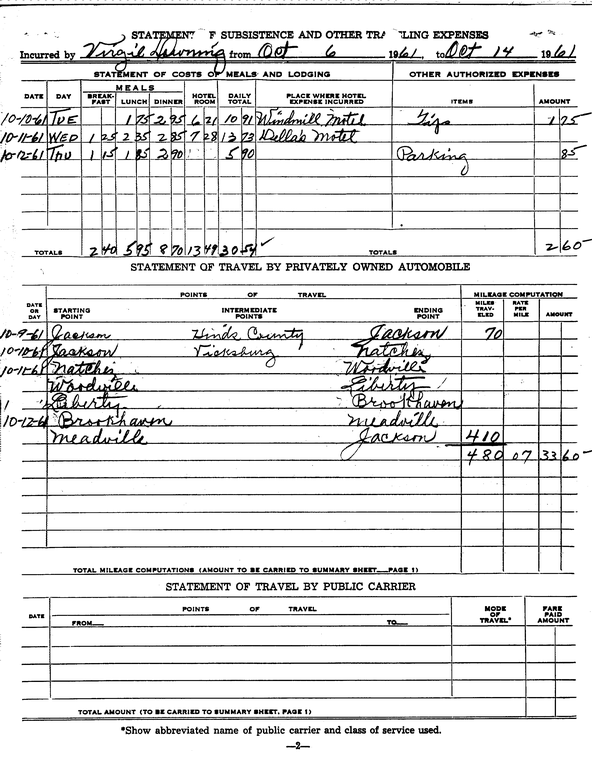 STATEMENT OF SUBSISTENCE AND OTHER TRAVELLING EXPENSES
Incurred by Virgil Downing from Oct 6 1961, to Oct 14 1961
STATEMENT OF COSTS OF MEALS AND LODGING OTHER AUTHORIZED EXPENSES
DATE DAY MEALS BREAK-FAST LUNCH DINNER HOTEL ROOM DAILY TOTAL PLACE WHERE HOTEL EXPENSE INCURRED ITEMS AMOUNT
10-10-61 TUE 1 75 2 95 6 21 10 91 Windmill Motel Tips 1 75
10-11-61 WED 1 25 2 35 2 85 7 28 13 73 Della's Motel
10-12-61 THU 1 15 1 85 2 90 5 90 Parking 85
TOTALS 2 40 5 95 8 70 13 49 30 54 ✓ TOTALS 2 60
STATEMENT OF TRAVEL BY PRIVATELY OWNED AUTOMOBILE
DATE OR DAY POINTS OF TRAVEL MILEAGE COMPUTATION
STARTING POINT INTERMEDIATE POINTS ENDING POINT MILES TRAV-ELED RATE PER MILE AMOUNT
10-9-61 Jackson Hinds County Jackson 70
10-10-61 Jackson Vicksburg Natchez
10-11-61 Natchez Woodville
Woodville Liberty
Liberty Brookhaven
10-12-61 Brookhaven Meadville
Meadville Jackson 410
480 07 33 60
TOTAL MILEAGE COMPUTATIONS (AMOUNT TO BE CARRIED TO SUMMARY SHEET__PAGE 1)
STATEMENT OF TRAVEL BY PUBLIC CARRIER
DATE POINTS OF TRAVEL MODE OF TRAVEL* FARE PAID AMOUNT
FROM__ TO__
TOTAL AMOUNT (TO BE CARRIED TO SUMMARY SHEET, PAGE 1)
*Show abbreviated name of public carrier and class of service used.
—2—